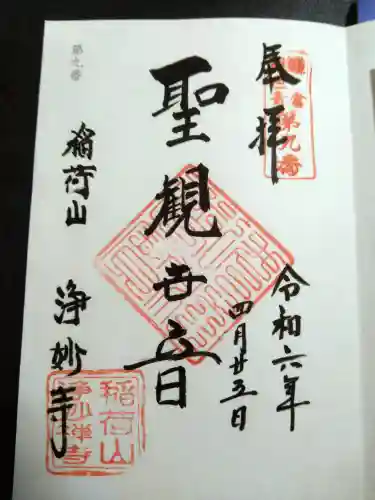 奉拝
鎌倉
第九番
令和六年
四月廿五日
聖観世音
稲荷山
浄妙寺
第九番
稲荷山
浄妙禅寺